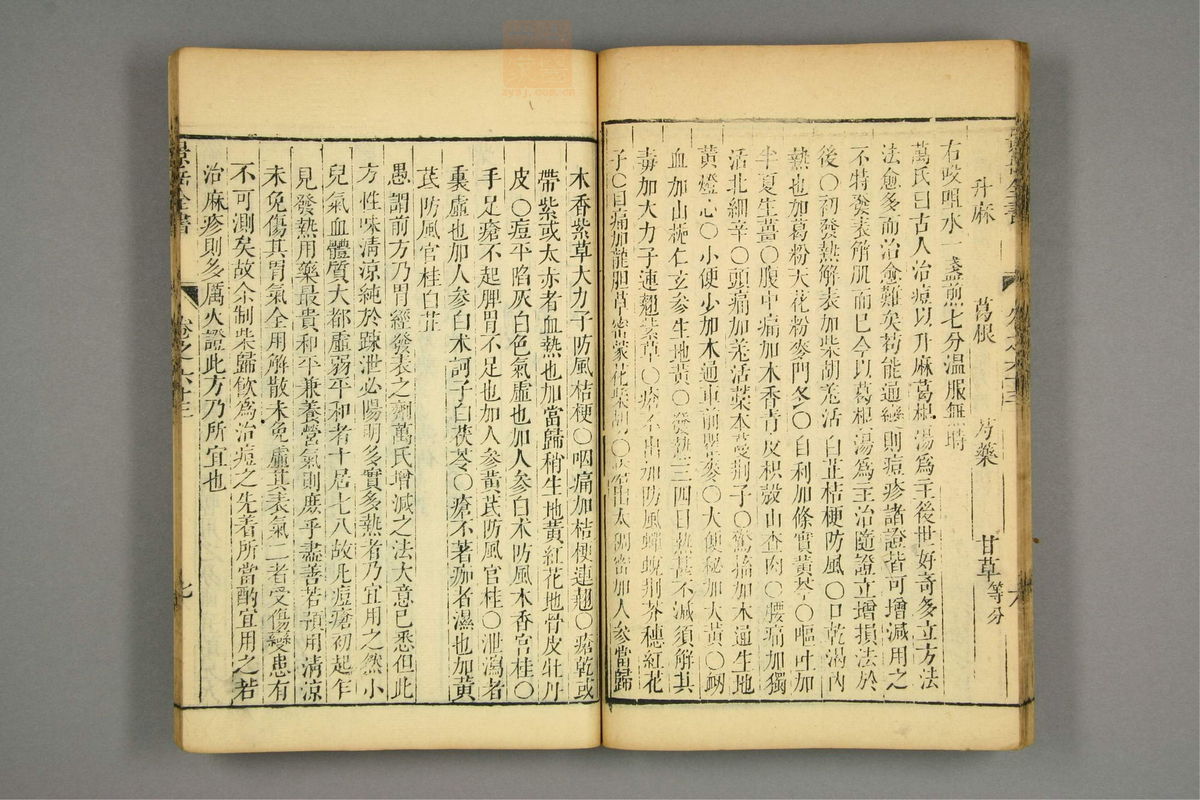 升麻 葛根 芍藥 甘草等分
右㕮咀水一盞煎七分溫服無時
萬氏曰古人治痘以升麻葛根湯爲主後世好奇多立方法
法愈多而治愈難矣苟能通變則痘疹諸證皆可增減用之
不特發表解肌而已今以葛根湯爲主治隨證立增損法於
後〇初發熱解表加柴胡羌活白芷桔梗防風〇口乾渴內
熱也加葛粉天花粉麥門冬〇自利加條實黃芩〇嘔吐加
半夏生薑〇腹中痛加木香青皮枳殼山查肉〇腰痛加獨
活北細辛〇頭痛加羌活藁本蔓荆子〇驚搐加木通生地
黃燈心〇小便少加木通車前瞿麥〇大便秘加大黃〇衂
血加山梔仁玄參生地黃〇發熱三四日熱甚不減須解其
毒加大力子連翹紫草〇瘡不出加防風蟬蛻荆芥穗紅花
子〇目痛加龍胆草密蒙花柴胡〇瘡出太稠密加人參當歸
木香紫草大力子防風桔梗〇咽痛加桔梗連翹〇瘡乾或
帶紫或太赤者血熱也加當歸稍生地黃紅花地骨皮牡丹
皮〇痘平陷灰白色氣虛也加人參白朮防風木香官桂〇
手足瘡不起脾胃不足也加人參黃芪防風官桂〇泄瀉者
裏虛也加人參白朮訶子白茯苓〇瘡不著痂者濕也加黃
芪防風官桂白芷
愚謂前方乃胃經發表之劑萬氏增減之法大意已悉但此
方性味清涼純於踈泄必陽明多實多熱者乃宜用之然小
兒氣血體質大都虛弱平和者十居七八故凡痘瘡初起乍
見發熱用藥最貴和平兼養營氣則庶乎盡善若預用清涼
未免傷其胃氣全用解散未免虛其表氣二者受傷變患有
不可測矣故余制柴歸飲爲治痘之先着所當酌宜用之若
治麻疹則多厲火證此方乃所宜也
景岳全書 卷之六十三 七